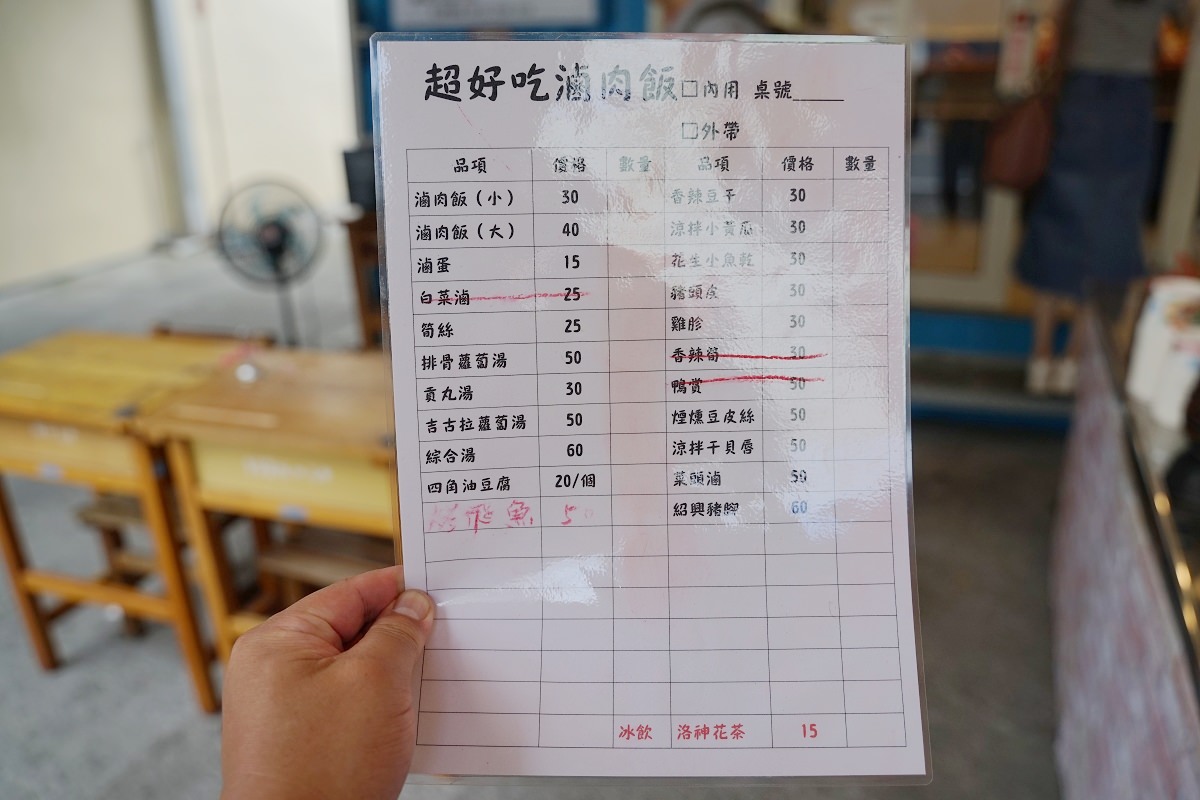 超好吃滷肉飯 □內用 桌號_____
□外帶
品項 價格 數量 品項 價格 數量
滷肉飯(小) 30 香辣豆干 30
滷肉飯(大) 40 涼拌小黃瓜 30
滷蛋 15 花生小魚乾 30
白菜滷 25 豬頭皮 30
筍絲 25 雞胗 30
排骨蘿蔔湯 50 香辣筍 30
貢丸湯 30 鴨賞 50
吉古拉蘿蔔湯 50 煙燻豆皮絲 50
綜合湯 60 涼拌干貝唇 50
四角油豆腐 20/個 菜頭滷 50
飛魚 紹興豬腳 60
冰飲 洛神花茶 15